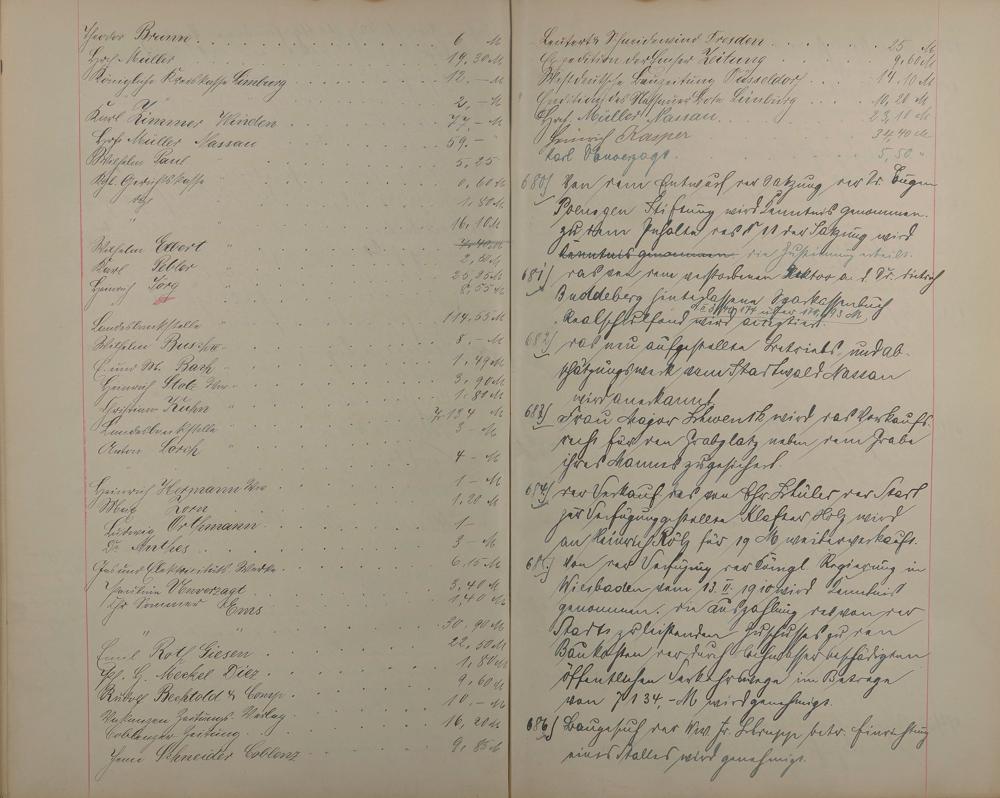 Theodor Brunn . . . 6 M
Chrf. Müller . . . 19,30 M
Königliche Kreiskasse Limburg . . . 12.— M
2,— M
Karl Zimmer Winden . . . 77.— M
Chrf. Müller Nassau . . . 59.—
Wilhelm Paul . . . 5,25
Kgl. Gerichtskasse . . . 0,60 M
1,80 M
16,10 M
Wilhelm Eckert "
Karl Seltor " . . . 25,25 M
Heinrich Jörg . . . 8,55 M
Landesbankstelle . . . 114,55 M
Wilhelm Buschw. . . . 8.— M
E. und M. Bach . . . 1,49 M
Heinrich Stolz Ww. . . . 3,90 M
1,80 M
Christian Kuhn " . . . 7,134 M
Landesbankstelle . . . 3 — M
Anton Lorch " . . . 4 — M
Heinrich Hermann Ww . . . 1 — M
Max Zorn . . . 1.20 M
Ludwig Orthmann . . . 1 —
Dr. Anthes . . . 3 — M
Gas und Elektricitäts Werke . . . 6,15 M
Pauline Unverzagt . . . 3,40 M
Chr. Sommer Ems . . . 1,40 M
" " . . . 30,90 M
Emil Roth Giesen . . . 22,50 M
Jos. G. Meckel Diez . . . 1,80 M
Rudolf Bechtold & Comp. . . . 9,60 M
Vakanzen Zeitungs-Verlag . . . 10.— M
Coblenzer Zeitung . . . 16,20 M
Schneider Coblenz . . . 9,85 M
Leuterts Schneidewind Dresden . . . 25 M
Expedition der Emser Zeitung . . . 9,60 M
Westdeutsche Bauzeitung Düsseldorf . . . 14,10 M
Expedition des Nassauer Bote Limburg . . . 10,20 M
Chrf. Müller Nassau . . . 23,18 M
Heinrich Kasper . . . 34,40 M
Karl Unverzagt . . . 5,50 "
680) Von dem Entwurf der Satzung der Dr. Eugen
Poensgen Stiftung wird Kenntnis genommen.
Zu dem Inhalte des § 11 der Satzung wird
Kenntnis genommen die Zustimmung erteilt.
681) Das von dem verstorbenen Rektor a. d. Dr. Dietrich
Buddeberg hinterlassene Sparkassenbuch
Realschulfond wird
682) Das neu aufgestellte Betriebs, und Ab-
schätzungswerk vom Stadtwald Nassau
wird anerkannt.
683) Frau Major Schwenck wird das Vorkaufs-
recht für den Grabplatz neben dem Grabe
ihres Mannes zugesichert.
684) Der Verkauf des von Chr. Schüler der Stadt
zur Verfügung gestellte Klafter Holz wird
an Heinrich Kölz für 19 M weiterverkauft.
685) Von der Verfügung der Königl. Regierung in
Wiesbaden vom 13. II. 1910 wird Kenntnis
genommen. Die Auszahlung des von der
Stadt zu leistenden Zuschusses zu den
Baukosten der durch Hochwasser beschädigten
öffentlichen Verkehrswege im Betrage
von 7134,— M wird genehmigt.
686) Baugesuch der Ww. Fr. Schrupp betr. Einrichtung
eines Stalles wird genehmigt.